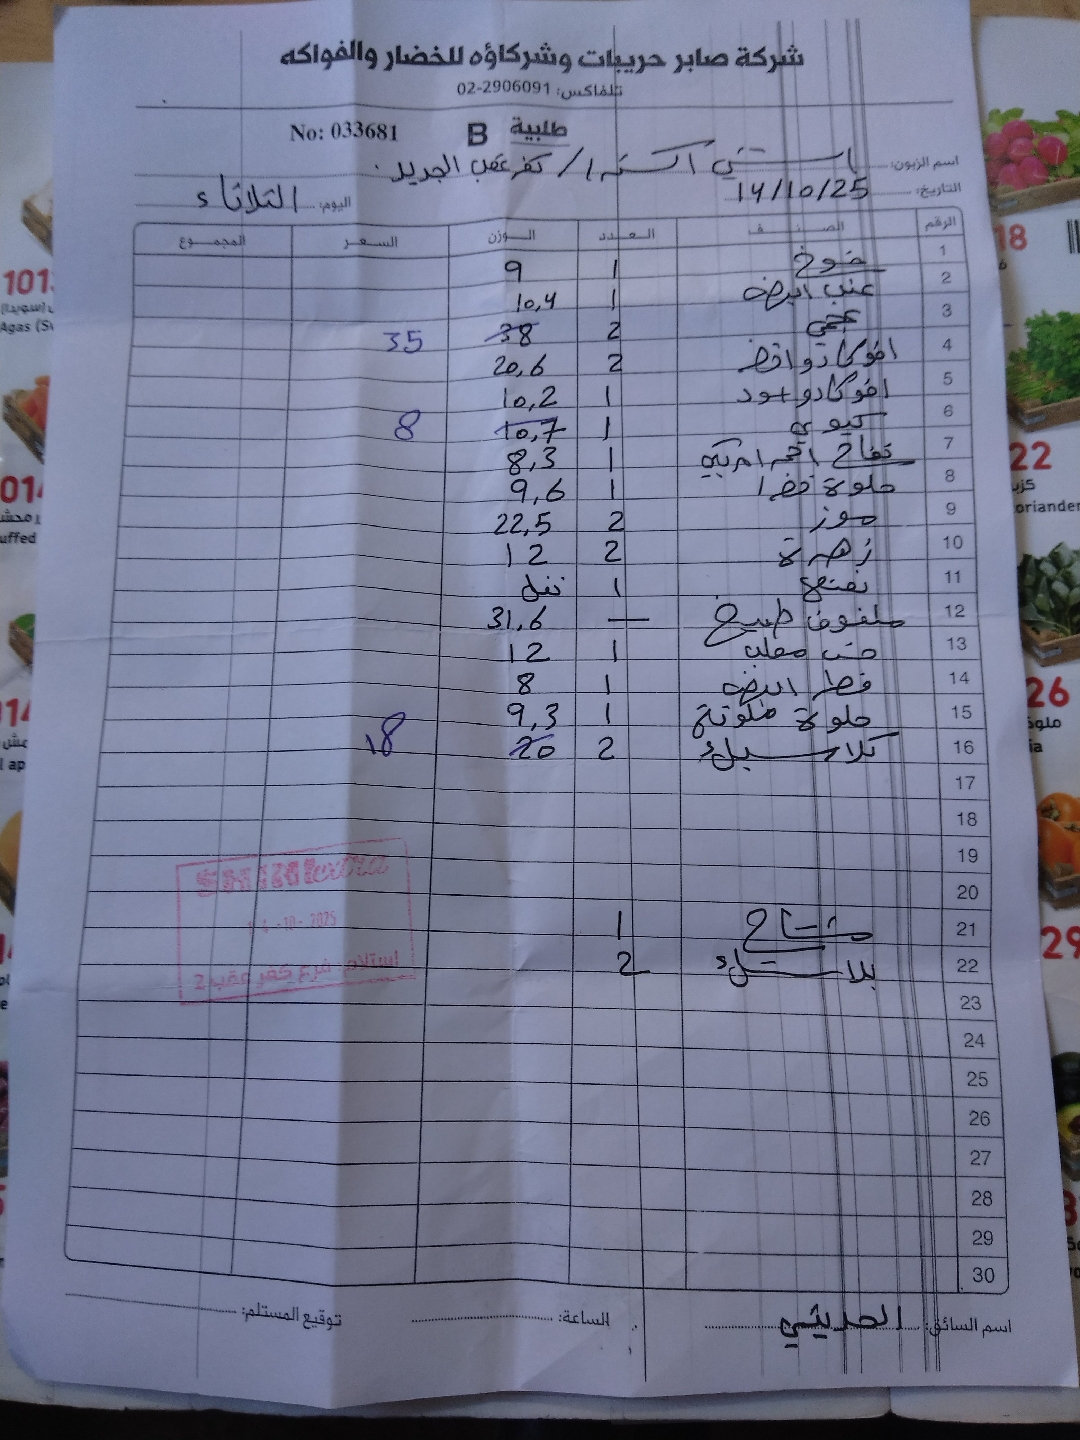 شركة صابر حريبات وشركاؤه للخضار والفواكه
تلفاكس: 02-2906091
طلبية B No: 033681
اسم الزبون: اكسترا / كفر عقب الجديد
التاريخ: 14/10/25 اليوم: الثلاثاء
الرقم الصنف العدد الوزن السعر المجموع
1 خوخ 1 9
2 عنب ابيض 1 10,4
3 2 38 35
4 افوكادو اخضر 2 20,6
5 افوكادو اسود 1 10,2
6 كيوي 1 10,7 8
7 تفاح احمر امريكي 1 8,3
8 حلوة خضرا 1 9,6
9 موز 2 22,5
10 زهرة 2 12
11 نعنع 1
12 ملفوف طبيخ — 31,6
13 خس معلب 1 12
14 فطر ابيض 1 8
15 حلوة ملونة 1 9,3
16 2 20 18
17
18
19
20
21 مشتاح 1
22 2
23
24
25
26
27
28
29
30
SHINI extra
14-10-2025
استلام فرع كفر عقب 2
اسم السائق: الساعة: توقيع المستلم:
1013
Agas
014
uffed
18
22
كزب
oriander
26
ia
29